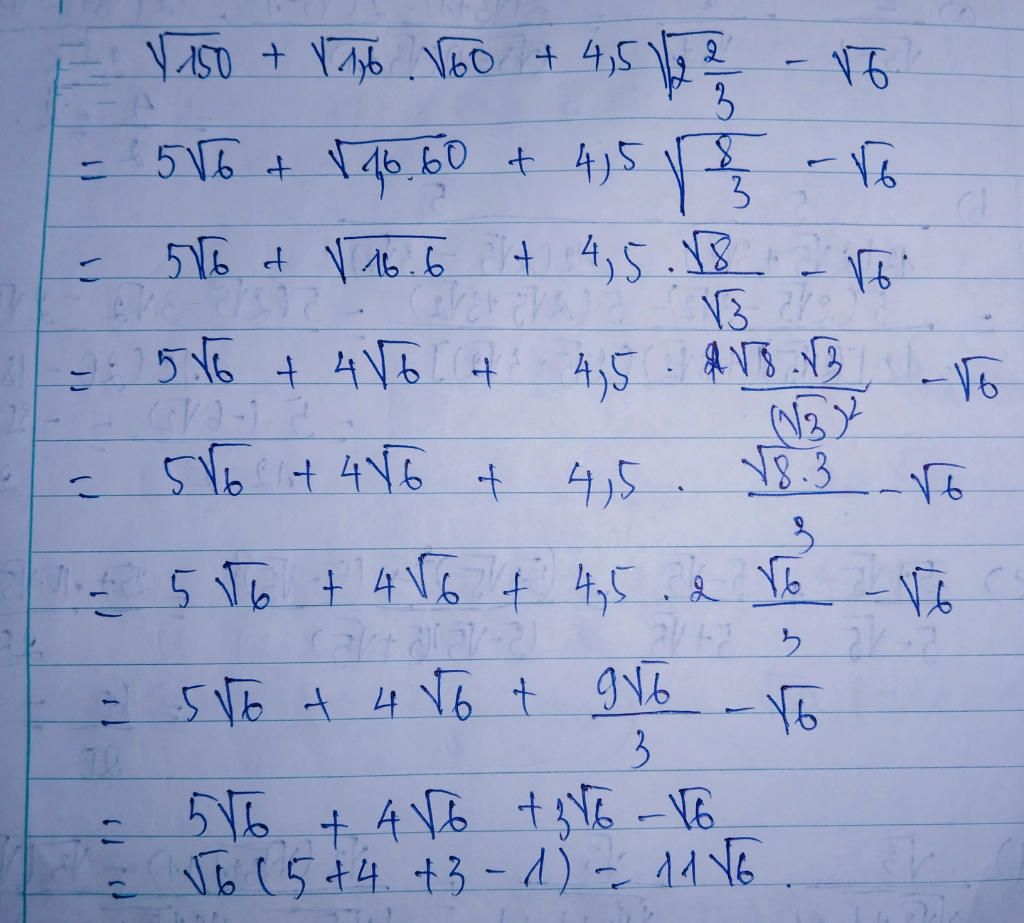 √150 + √1,6 . √60 + 4,5 √(2 2/3) - √6
= 5√6 + √(1,6.60) + 4,5 √(8/3) - √6
= 5√6 + √(16.6) + 4,5 . √8/√3 - √6
= 5√6 + 4√6 + 4,5 . (√8.√3)/(√3)² - √6
= 5√6 + 4√6 + 4,5 . √(8.3)/3 - √6
= 5√6 + 4√6 + 4,5 . 2 √6/3 - √6
= 5√6 + 4√6 + 9√6/3 - √6
= 5√6 + 4√6 + 3√6 - √6
= √6 (5 + 4 + 3 - 1) = 11√6.